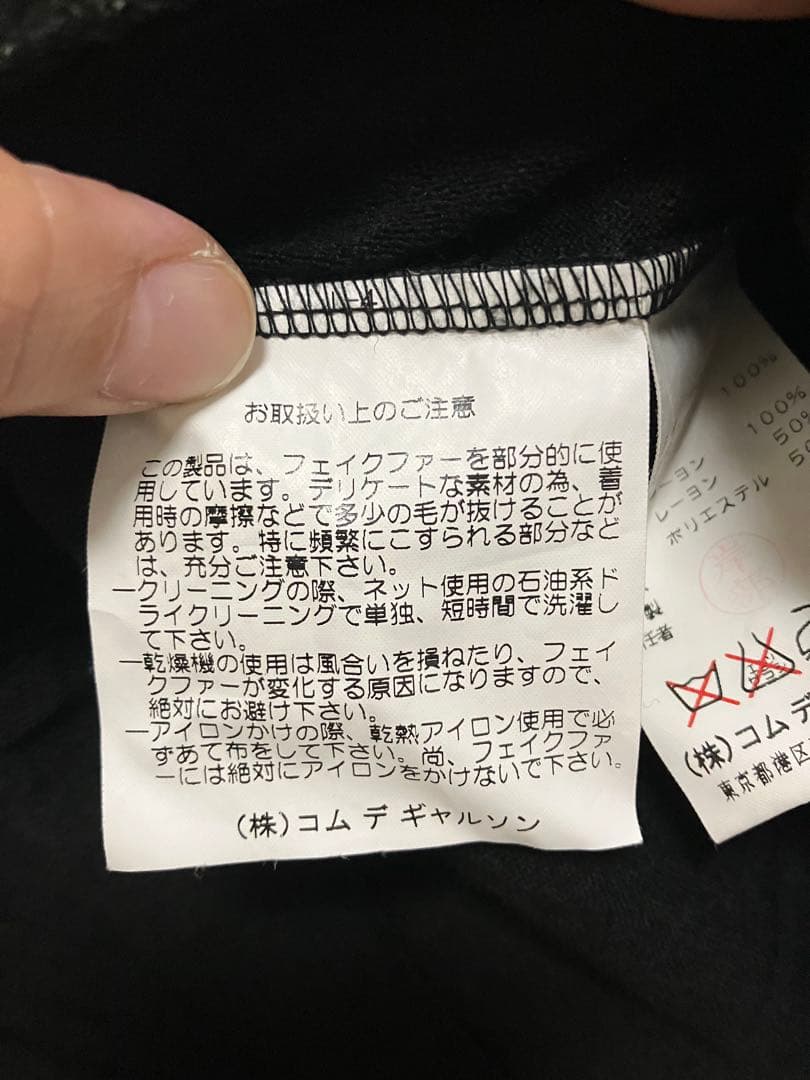 お取扱い上のご注意
この製品は、フェイクファーを部分的に使
用しています。デリケートな素材の為、着
用時の摩擦などで多少の毛が抜けることが
あります。特に頻繁にこすられる部分など
は、充分ご注意下さい。
ークリーニングの際、ネット使用の石油系ド
ライクリーニングで単独、短時間で洗濯し
て下さい。
ー乾燥機の使用は風合いを損ねたり、フェイ
クファーが変化する原因になりますので、
絶対にお避け下さい。
ーアイロンかけの際、乾熱アイロン使用で必
ずあて布をして下さい。尚、フェイクファ
ーには絶対にアイロンをかけないで下さい。
(株)コム デ ギャルソン
100%
100%
レーヨン 50%
レーヨン
ポリエステル
任者
(株)コム デ
東京都港区